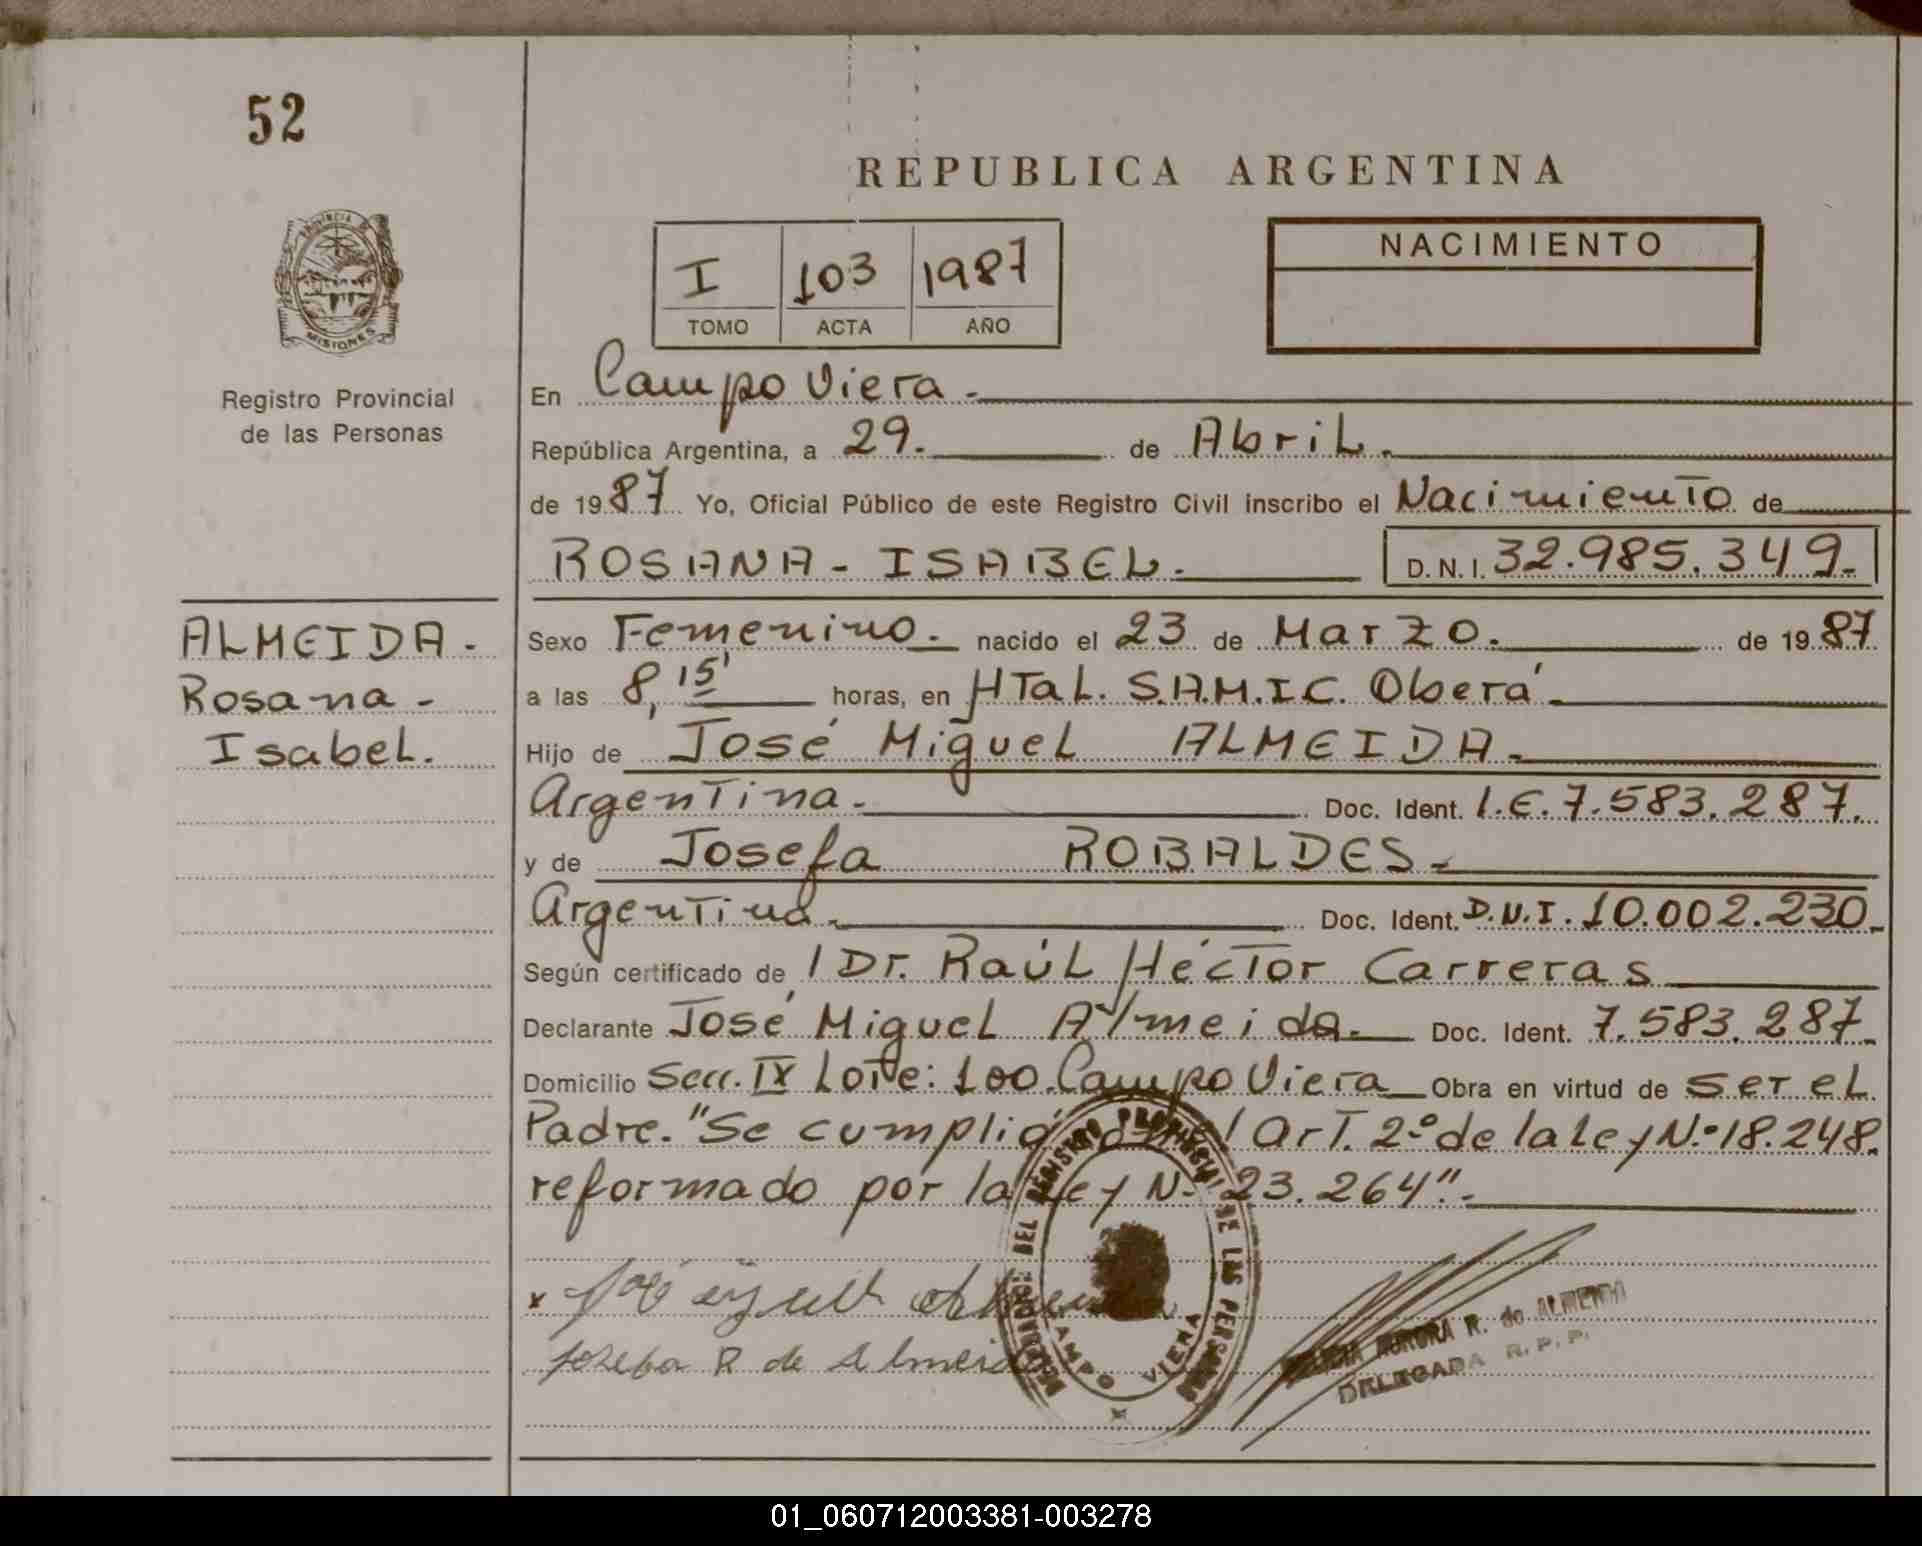 52
REPUBLICA ARGENTINA
PROVINCIA DE
MISIONES
Registro Provincial
de las Personas
I 103 1987
TOMO ACTA AÑO
NACIMIENTO
En Campo Viera.
República Argentina, a 29. de Abril.
de 1987 Yo, Oficial Público de este Registro Civil inscribo el Nacimiento de
ROSANA - ISABEL. D.N.I. 32.985.349.
ALMEIDA.
Rosana -
Isabel.
Sexo Femenino. nacido el 23 de Marzo. de 1987
a las 8,15' horas, en HTal. S.A.M.I.C. Oberá
Hijo de José Miguel ALMEIDA.
Argentina. Doc. Ident. l.E.7.583.287.
y de Josefa ROBALDES.
Argentina. Doc. Ident. D.N.I. 10.002.230.
Según certificado de / Dr. Raúl Héctor Carreras
Declarante José Miguel Almeida. Doc. Ident. 7.583.287.
Domicilio Secc. IX Lote: 100. Campo Viera Obra en virtud de ser el
Padre. "Se cumplió el Art. 2º de la Ley N.º 18.248.
reformado por la Ley Nº 23.264".
x
Josefa R de Almeida
REGISTRO PROVINCIAL DE LAS PERSONAS
CAMPO VIERA
AURORA R. de ALMEIDA
DELEGADA R. P. P.
01_060712003381-003278